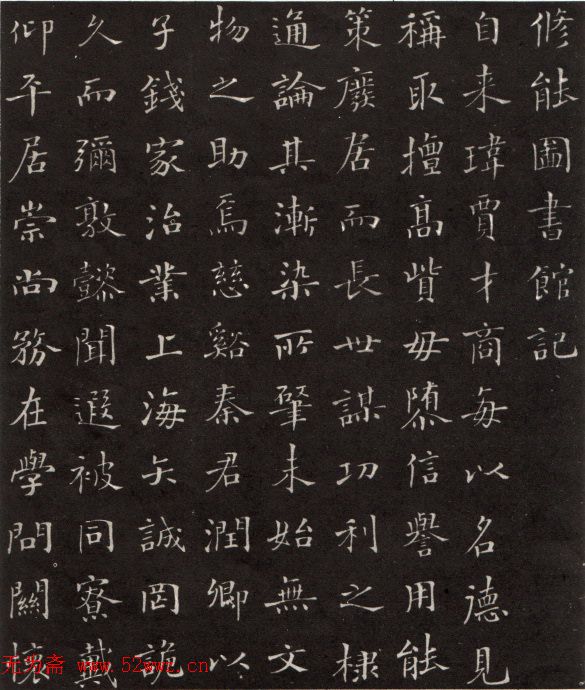 修能圖書館記
自来瑋賈才商每以名德見
稱取擅高貲毋隳信譽用能
策廢居而長世謀功利之棣
通論其漸染所肇未始無文
物之助焉慈谿秦君潤卿以
子錢家治業上海矢誠罔詭
久而彌敦懿聞遐被同寮戴
仰平居崇尚務在學問。關懷
无为斋 www.52wwz.cn